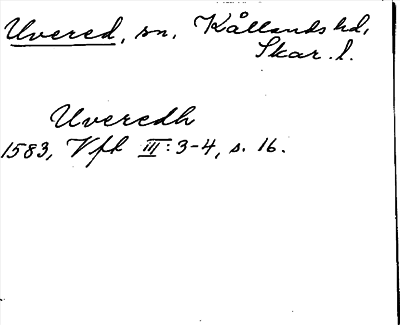 Uvered, sn, Kållands hd,
Skar. l.
Uveredh
1583, Vfk III: 3-4, s. 16.